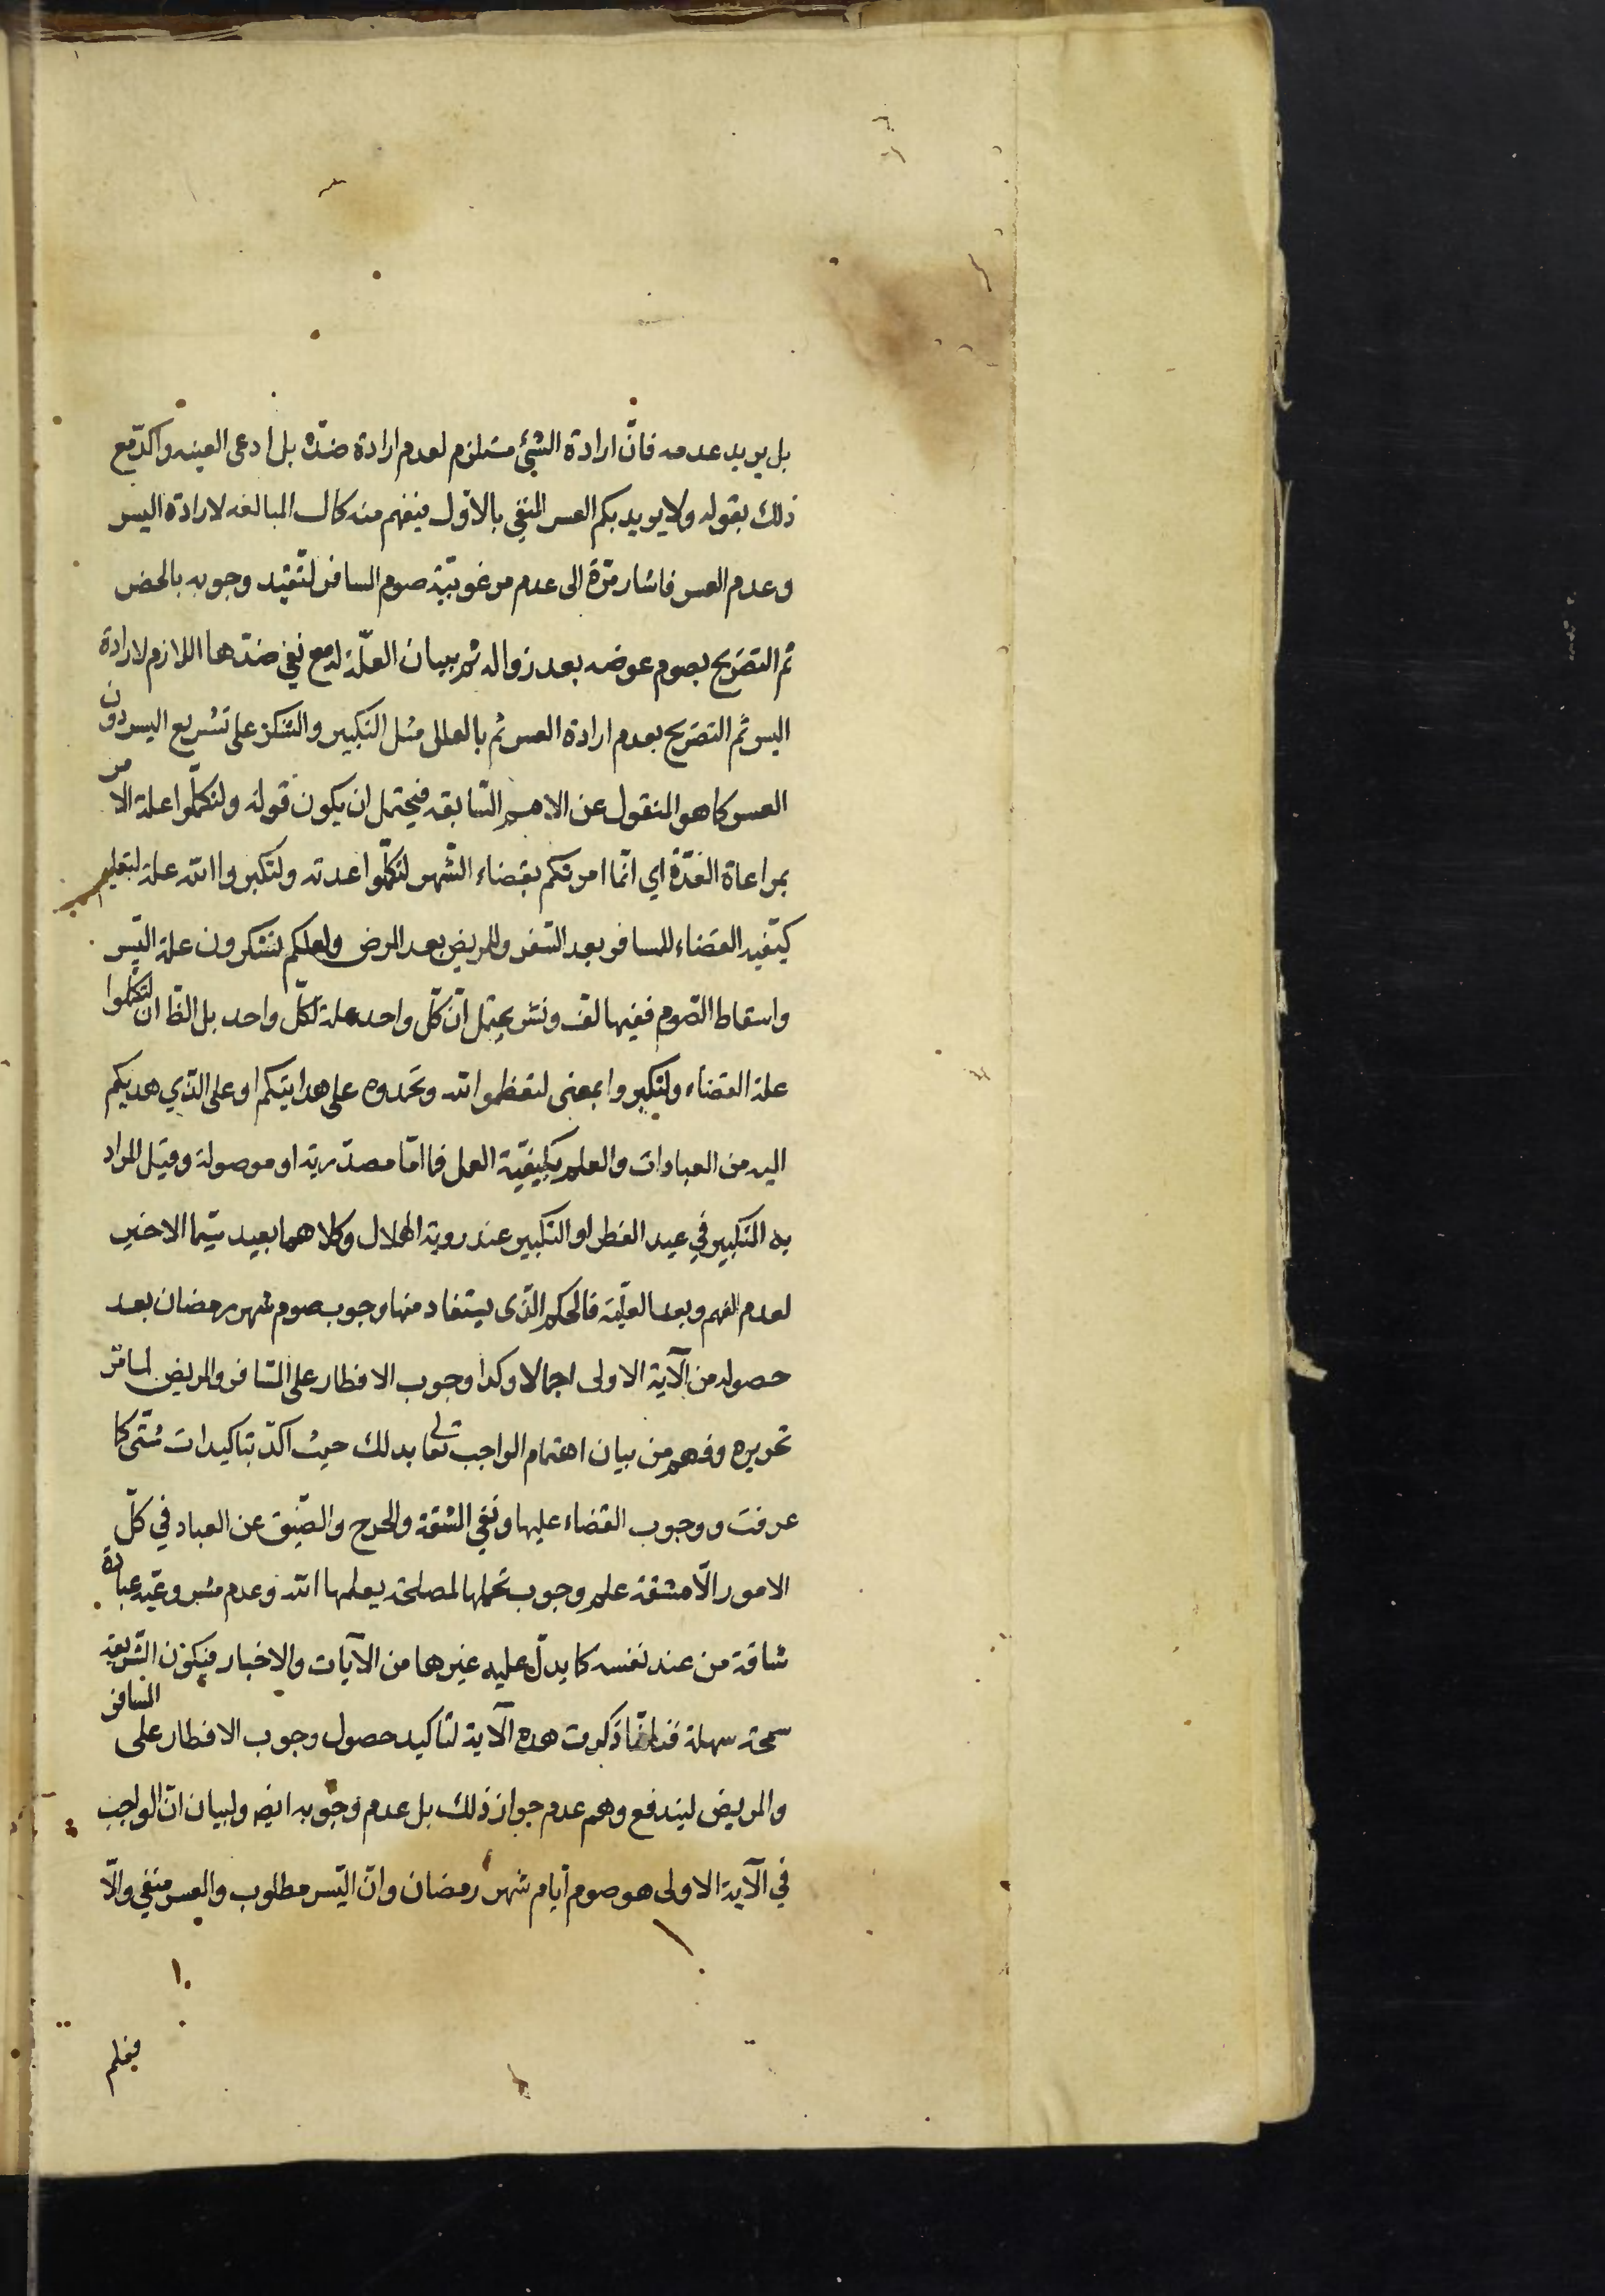 بل يريد عدمه فانّ ارادة الشيئ مستلزم لعدم ارادة ضدّه بل ادعى العينه واكدّ مع
ذلك بقوله ولا يريد بكم العسر النفي بالاوّل فيفهم منه كمال المبالغه لارادة اليسر
وعدم العسر فاشار مرّة الى عدم مرغوبيّة صوم المسافر لتقيّد وجوبه بالحضر
ثم التصريح بصوم عوضه بعد زواله ثم ببيان العلّة له مع نفي ضدّها اللازم لارادة
اليسر ثم التصريح بعدم ارادة العسر ثم بالعلل مثل التكبير والشكر على تشريع اليسر دون
العسر كما هو المنقول عن الامم السّابقه فيحتمل ان يكون قوله ولتكمّلوا علة الامر
بمراعاة العدّة اي انّما امرتكم بقضاء الشّهر لتكمّلوا عدته ولتكبروا الله علة لتعليم
كيّفية القضاء للمسافر بعد السّفر وللمريض بعد المرض ولعلكم تشكرون علة اليّسر
واسقاط الصّوم ففيها لف ونشر يحتمل انّ كلّ واحد علة لكلّ واحد بل الظا ان لتكملوا
علة القضاء ولتكبروا بمعنى لتعظموا الله وتحمدوه على هدايتكم او على الذّي هديكم
اليه من العبادات والعلم بكيفيّة العمل فما امّا مصدّرية او موصولة وقيل المراد
به التكبير في عيد الفطر او التكبير عند روية الهلال وكلاهما بعيد سيّما الاخير
لعدم الفهم وبعد العليّة فالحكم الذّى يستفاد منها وجوب صوم شهر رمضان بعد
حصوله من الآية الاولى اجمالا وكدا وجوب الافطار على المسافر والمريض لما مرّ
تحريره وفهم من بيان اهتمام الواجب تعالى بدلك حيث اكدّ بتاكيدات شتّى كما
عرفت ووجوب القضاء عليها ونفي المشقة والحرج والضّيق عن العباد في كلّ
الامور الاّ مشقة علم وجوب تحملها لمصلحة يعلمها الله وعدم مشروعيّة عبادة
شاقة من عند نفسه كما يدلّ عليه غيرها من الآيات والاخبار فيكون الشّريعة
سمحة سهلة ذكرت هده الآية لتاكيد حصول وجوب الافطار على المسافر
والمريض ليندفع وهم عدم جواز ذلك بل عدم وجوبه ايضا ولبيان انّ الواجب
في الآية الاولى هو صوم ايّام شهر رمضان وانّ اليّسر مطلوب والعسر منفي والاّ
فعلم